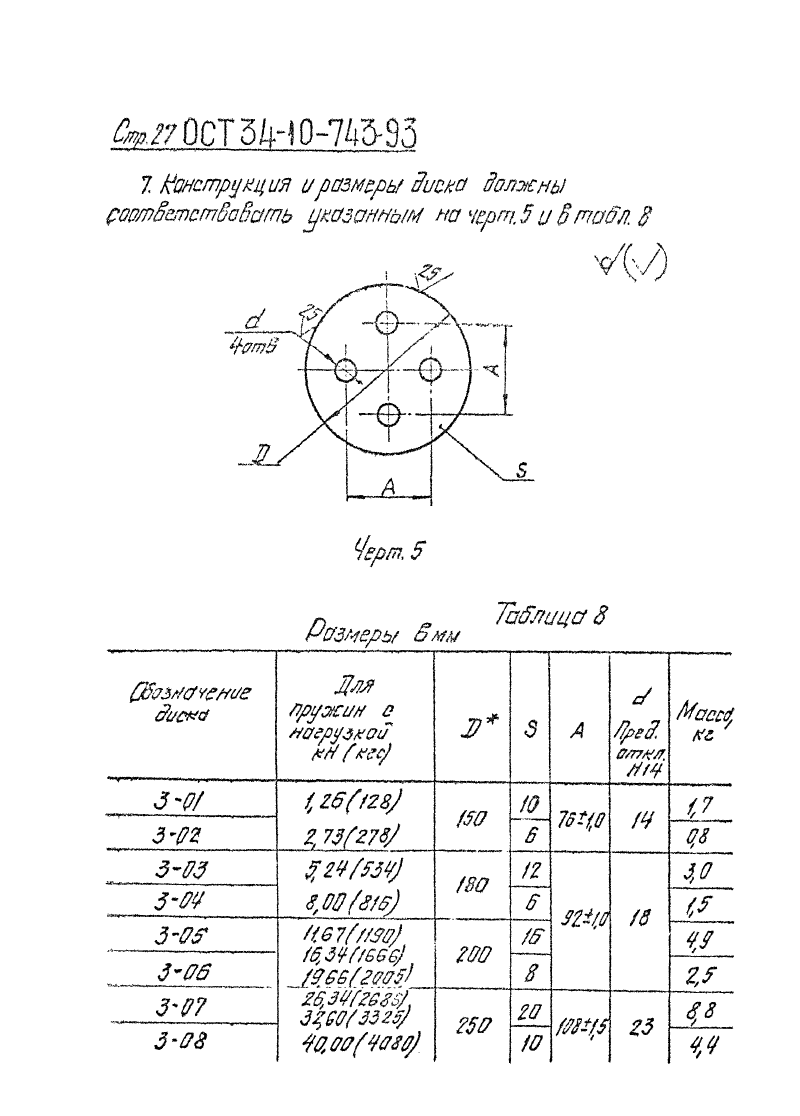 Стр.27 ОСТ 34-10-743-93
7. Конструкция и размеры диска должны
соответствовать указанным на черт.5 и в табл. 8
25
25
d
4отв
A
D
S
A
Черт. 5
Таблица 8
Размеры в мм
Обозначение диска | Для пружин с нагрузкой кН (кгс) | D* | S | A | d Пред. откл. H14 | Масса, кг
3-01 | 1,26(128) | 150 | 10 | 76±1,0 | 14 | 1,7
3-02 | 2,73(278) | 6 | 0,8
3-03 | 5,24(534) | 180 | 12 | 92±1,0 | 18 | 3,0
3-04 | 8,00(816) | 6 | 1,5
3-05 | 11.67(1190) | 200 | 16 | 4,9
16,34(1666)
3-06 | 19,66(2005) | 8 | 2,5
26,34(2686)
3-07 | 32,60(3325) | 250 | 20 | 108±1,5 | 23 | 8,8
3-08 | 40,00(4080) | 10 | 4,4